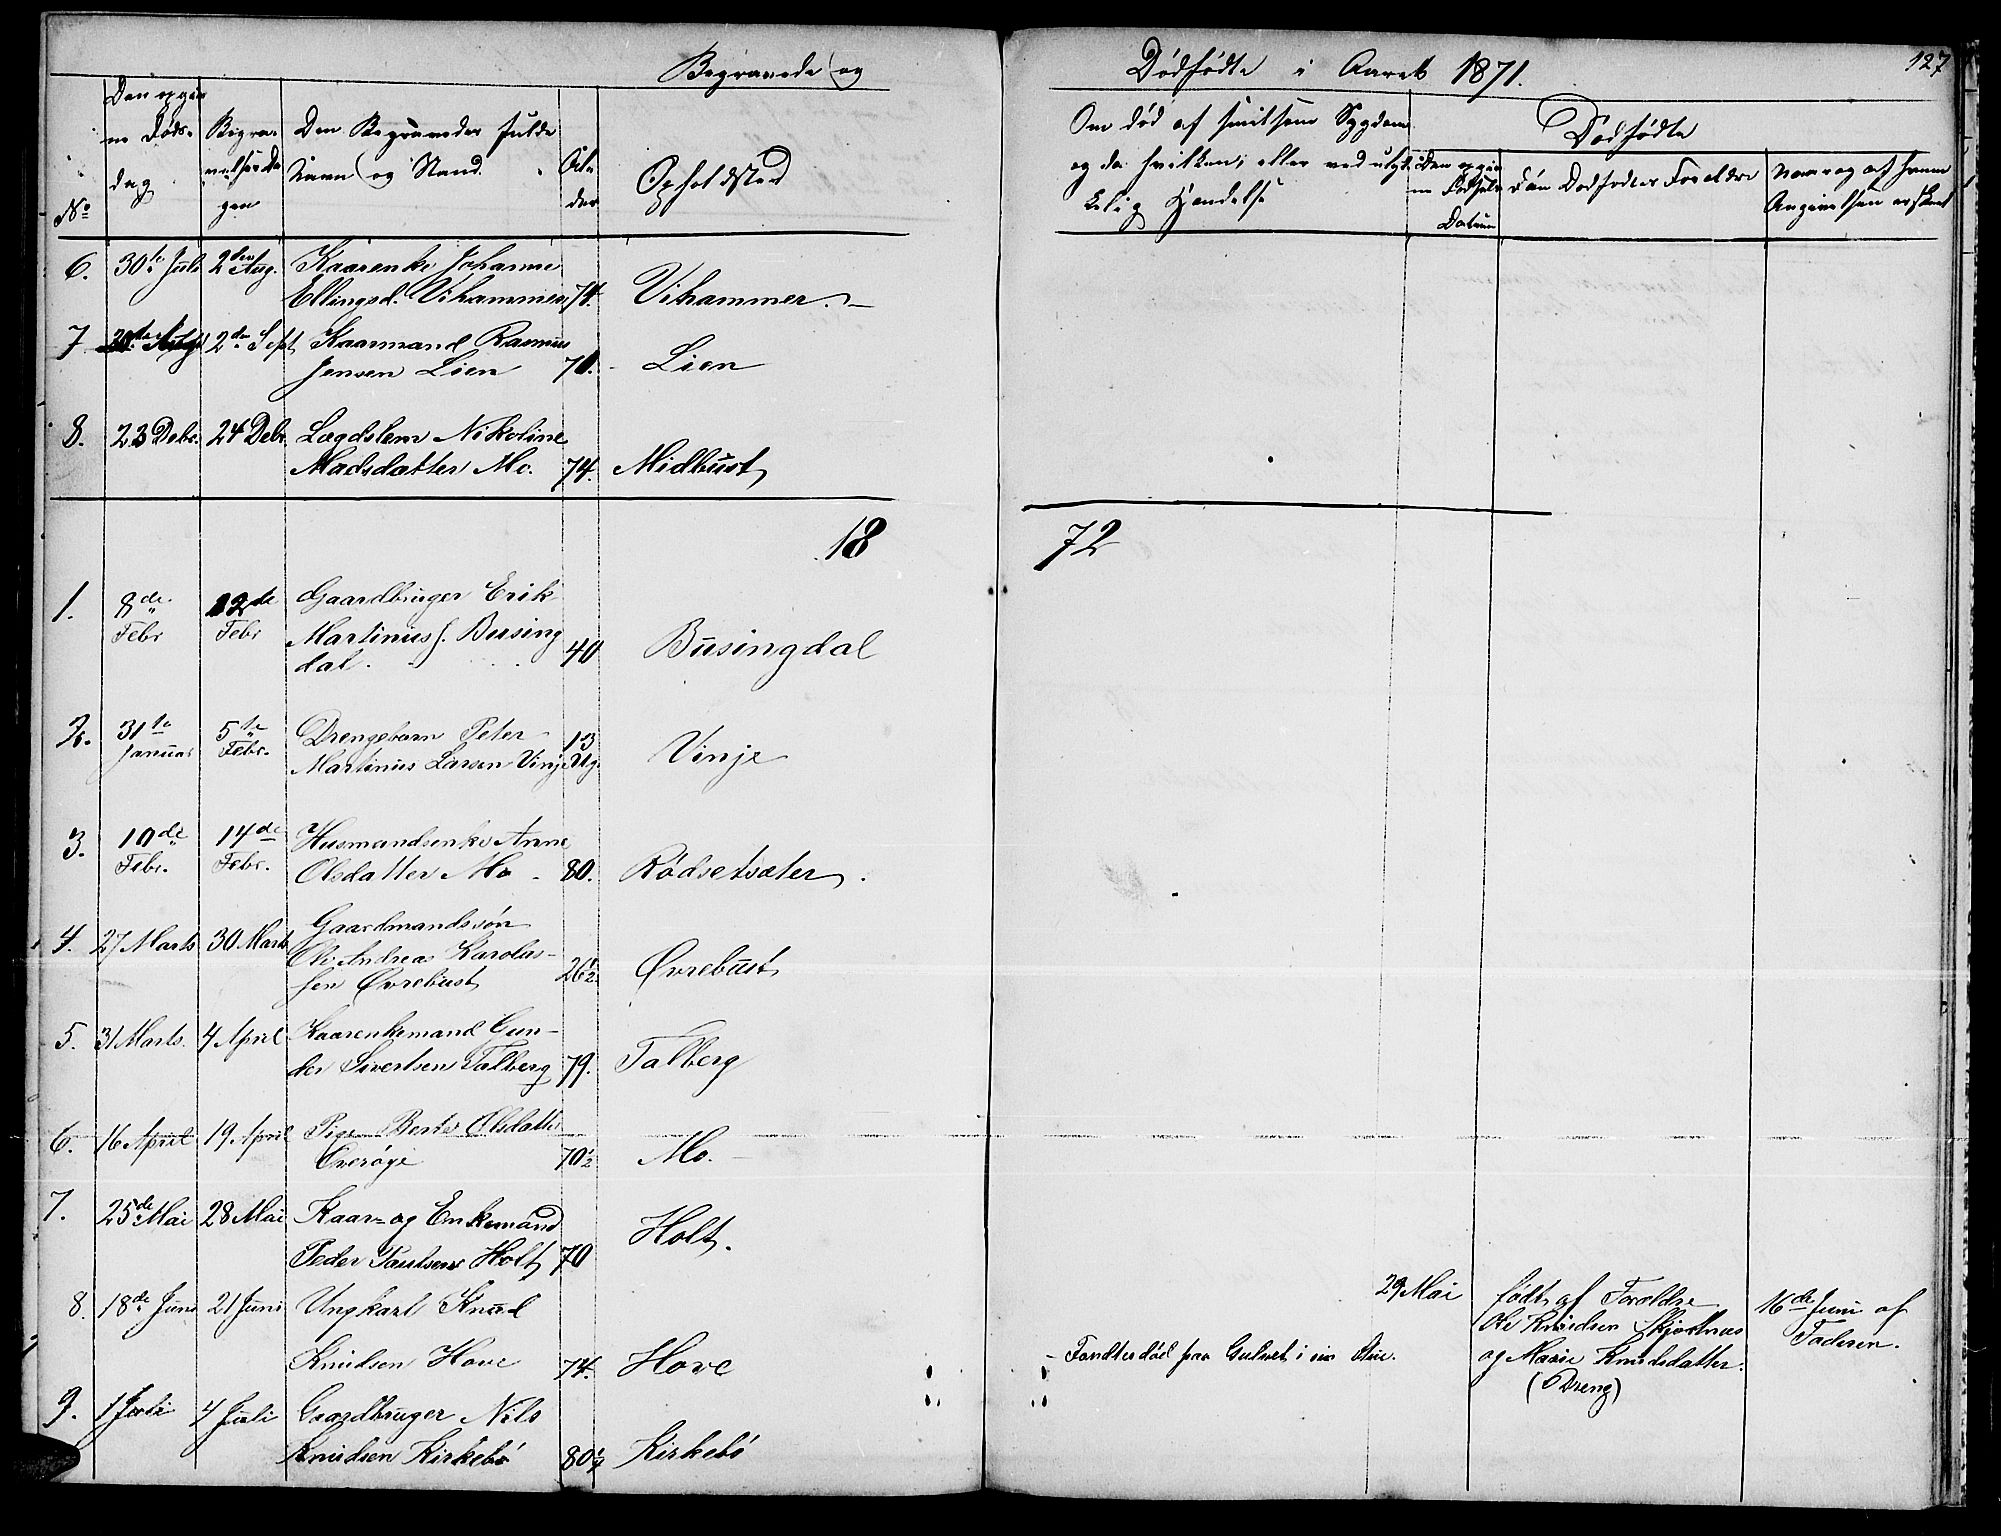 127
Begravede og Dødfødte i Aaret 1871.
No
Den opgiv
ne Døds-
dag
Begra-
velsesda
gen
Den Begravedes fulde
Navn og Stand.
Al-
der
Opholdsted
Om død af smitsom Sygdom
og da hvilken; eller ved ulyk-
kelig Hændelse
Dødfødte
Den opgiv
ne Fødsels
Datum
Den Dødfødtes Forældre
Naar og af hvem
Angivelsen er skeet
6. 30te Juli 2den Aug. Kaarenke Johanne
Ellingsd. Vihammer 74. Vihammer.
7 Aug 2den Sept Kaarmand Rasmus
Jensen Lien 70. Lien
8. 23 Debr. 24 Debr. Lægdslem Nikoline
Madsdatter Mo. 74. Midbust
18 72
1. 8de 12te Gaardbruger Erik
Febr Febr Martinius s. Busing
dal. 40 Busingdal
2. 31te 5te Drengebarn Peter 13
Januar Febr. Martinus Larsen Vinje Ug. Vinje
3. 10de 14de Husmandsenke Anne
Febr. Febr. Olsdatter Mo 80. Rødsetsæter.
4. 27 Marts 30 Marts Gaardmandssøn
Ole Andreas Karolus-
sen Øvrebust 26½ Øvrebust
5. 31 Marts. 4 April Kaarenkemand Gun-
der Sivertsen Talberg 79. Talberg
6. 16 April 19 April Pige Berte Olsdatter
Overøye 70½ Mo.
7. 25de Mai 28 Mai Kaar- og Enkemand
Peder Paulsen Holt 70 Holt.
8 18de Juni 21 Juni Ungkarl Knud
Knudsen Hove 74. Hove
- Fandtes død paa Gulvet i sin Stue.
29 Mai
født af Foreldre
Ole Knudsen Skjortnes
og Maase Knudsdatter.
(Dreng)
16de Juni af
Faderen.
9. 1 Juli 4 Juli Gaardbruger Nils
Knudsen Kirkebø 80½ Kirkebø